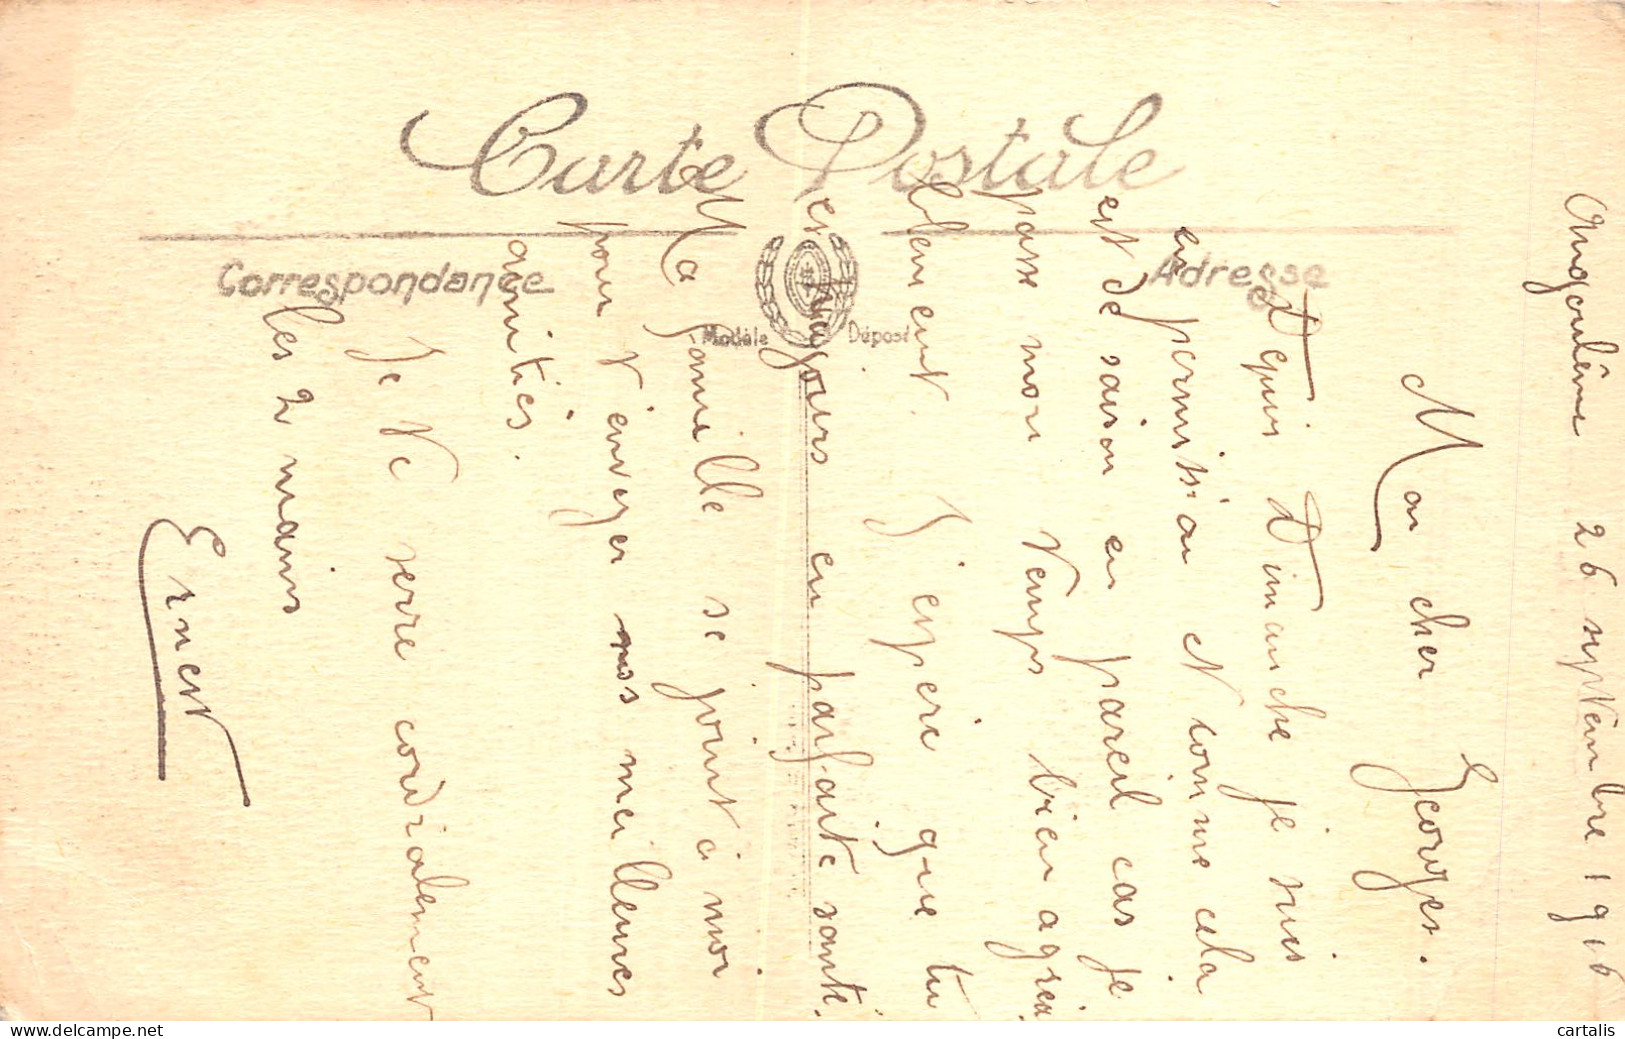 Carte Postale
Correspondance
Adresse
Modèle Déposé
Angoulême 26 septembre 1916
Mon cher Georges.
Depuis Dimanche je suis
en permission et comme cela
est de saison en pareil cas je
passe mon temps bien agréa
blement. J'espère que tu
es toujours en parfaite santé.
Ma famille se joint à moi
pour t'envoyer nos meilleures
amitiés.
Je te serre cordialement
les 2 mains
Ernest
cartalis